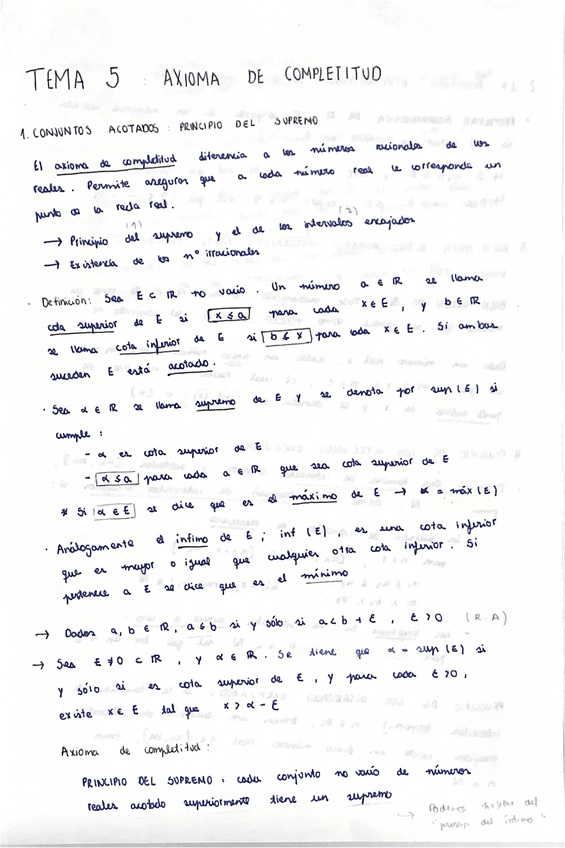 TEMA 5 : AXIOMA DE COMPLETITUD
1. CONJUNTOS ACOTADOS : PRINCIPIO DEL SUPREMO
El axioma de completitud diferencia a los números racionales de los
reales. Permite asegurar que a cada número real le corresponda un
punto de la recta real.
(1) (2)
→ Principio del supremo y el de los intervalos encajados
→ Existencia de los nº irracionales
· Definición: Sea E ⊂ ℝ no vacío. Un número a ∈ ℝ se llama
cota superior de E si x ≤ a para cada x ∈ E, y b ∈ ℝ
se llama cota inferior de E si b ≤ x para cada x ∈ E. Si ambas
suceden E está acotado.
· Sea α ∈ ℝ se llama supremo de E y se denota por sup (E) si
cumple :
- α es cota superior de E
- α ≤ a para cada a ∈ ℝ que sea cota superior de E
* Si α ∈ E se dice que es el máximo de E → α = máx (E)
· Análogamente el ínfimo de E ; inf (E), es una cota inferior
que es mayor o igual que cualquier otra cota inferior. Si
pertenece a E se dice que es el mínimo
→ Dados a, b ∈ ℝ, a ≤ b si y sólo si a < b + ε, ε > 0 (R.A)
→ Sea E ≠ 0 ⊂ ℝ, y α ∈ ℝ. Se tiene que α = sup (E) si
y sólo si es cota superior de E, y para cada ε > 0,
existe x ∈ E tal que x > α - ε
Axioma de completitud :
PRINCIPIO DEL SUPREMO : cada conjunto no vacío de números
reales acotado superiormente tiene un supremo
→ Podemos hablar del
"princip. del ínfimo"